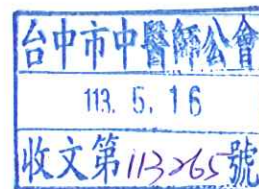 台中市中醫師公會
113. 5. 16
收文第113265號